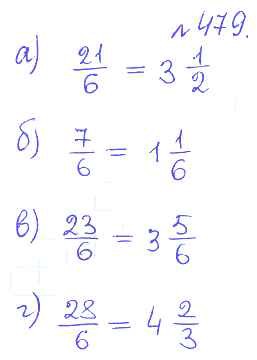 № 479.
а) 21/6 = 3 1/2
б) 7/6 = 1 1/6
в) 23/6 = 3 5/6
г) 28/6 = 4 2/3